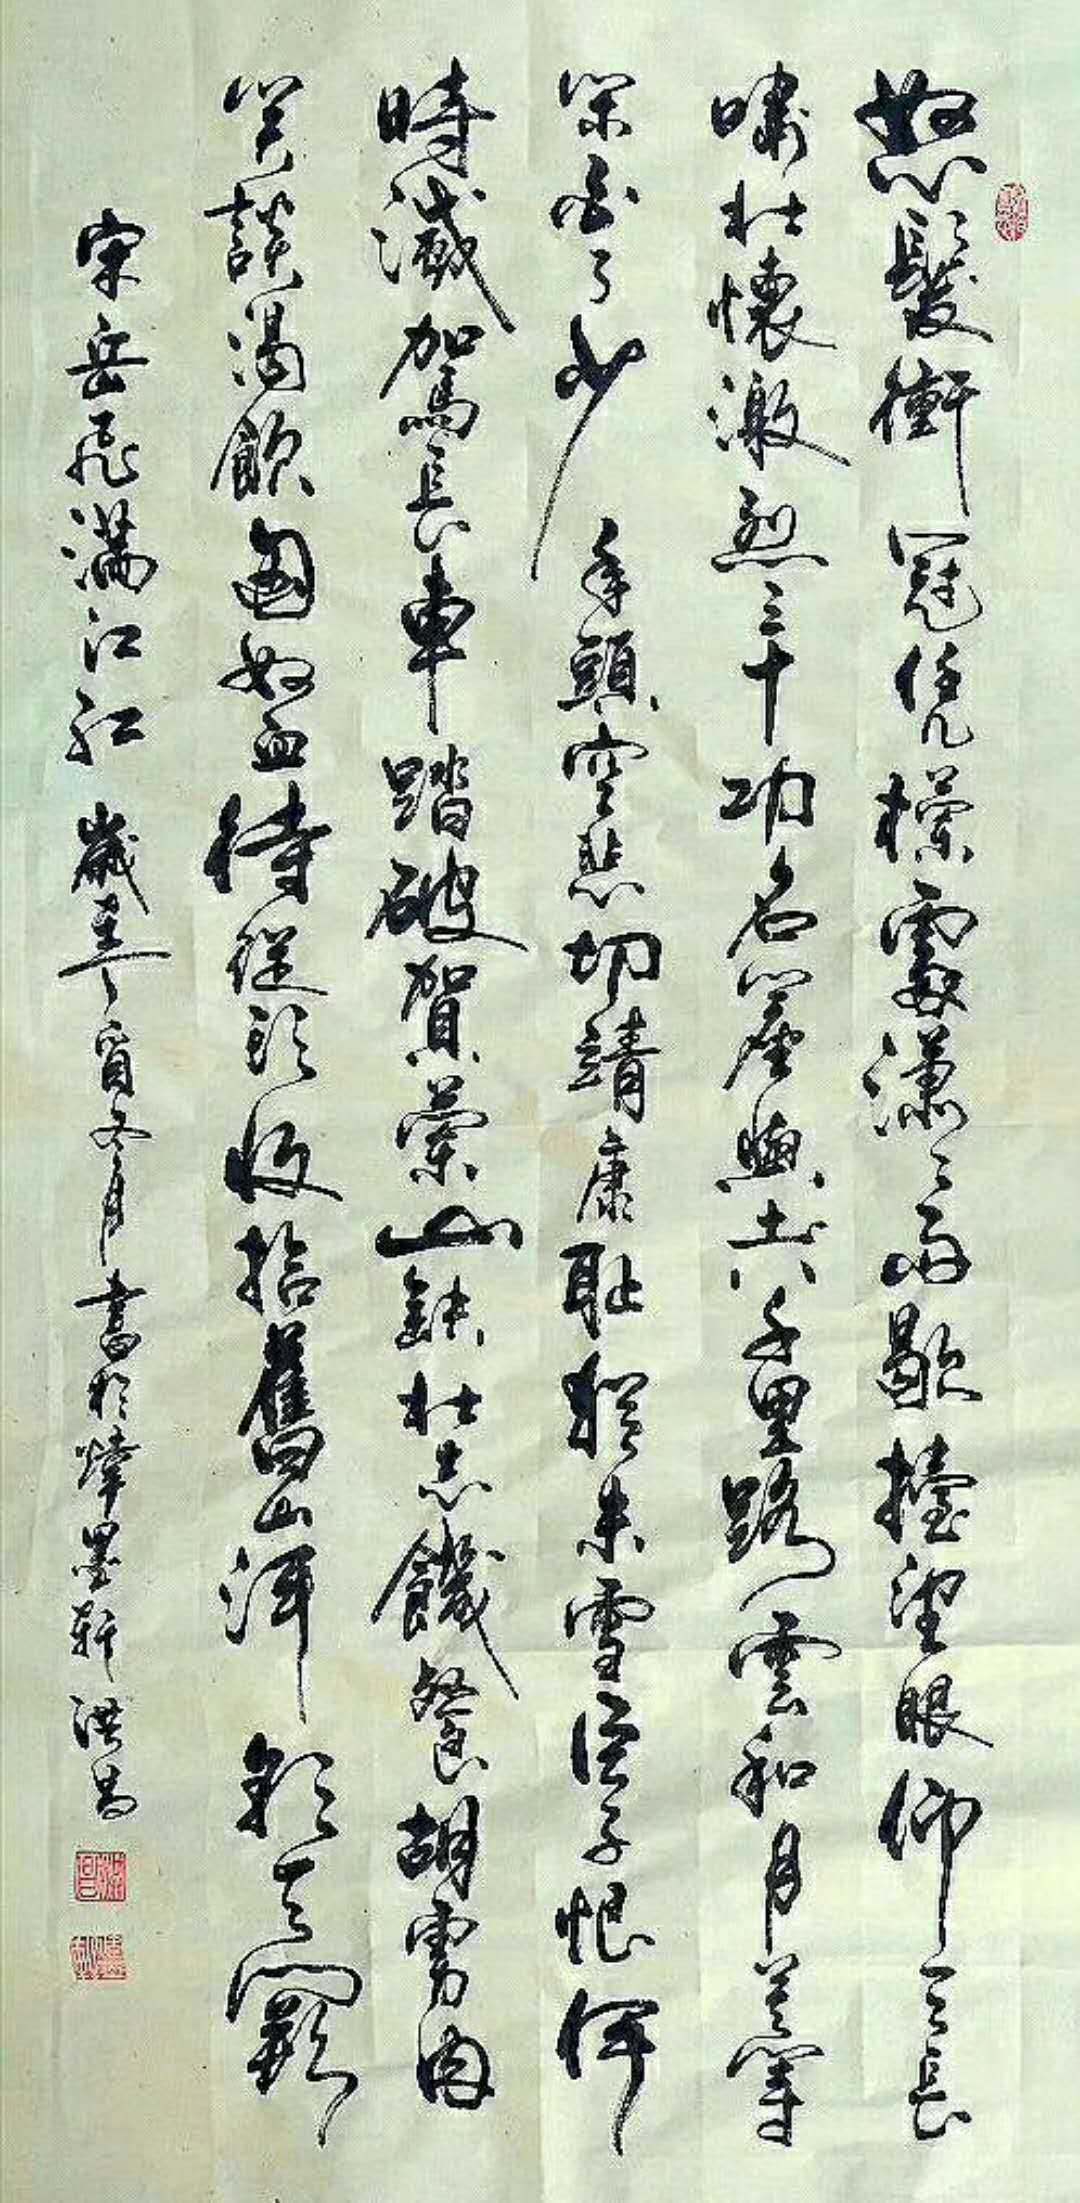 怒髮衝冠凭欄處瀟〻雨歇擡望眼仰天長
嘯壯懷激烈三十功名塵與土八千里路雲和月莫等
閑白了少年頭空悲切靖康恥猶未雪臣子恨何
時滅駕長車踏破賀蘭山缺壯志饑餐胡虜肉
笑談渴飲匈奴血待從頭收拾舊山河朝天闕
宋岳飛滿江紅歲冬月書於墨軒洪